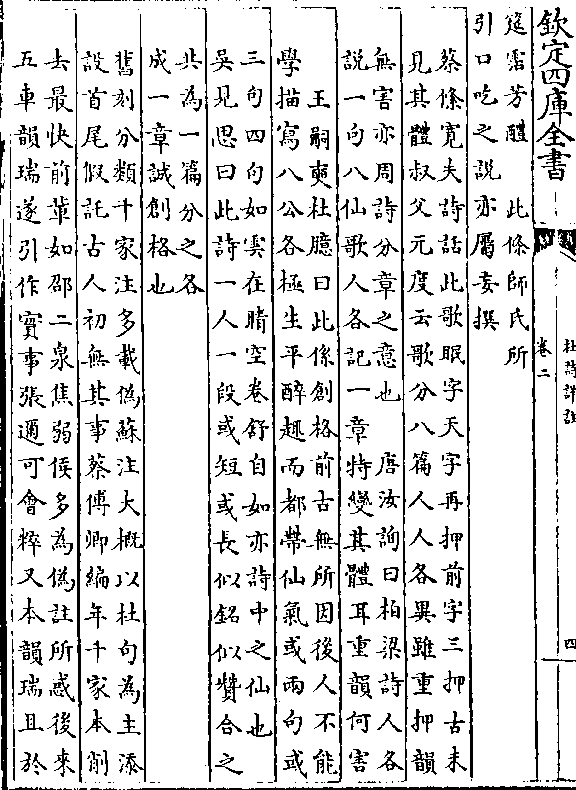 欽定四庫全書
杜詩詳註
卷二
四
筵霑芳醴　此條師氏所
引口吃之說亦屬妄撰
蔡絛寬夫詩話此歌眠字天字再押前字三押古未
見其體叔父元度云歌分八篇人人各異雖重押韻
無害亦周詩分章之意也　唐汝詢曰柏梁詩人各
說一句八仙歌人各記一章特變其體耳重韻何害
王嗣奭杜臆曰此係創格前古無所因後人不能
學描寫八公各極生平醉趣而都帶仙氣或兩句或
三句四句如雲在晴空卷舒自如亦詩中之仙也
吳見思曰此詩一人一段或短或長似銘似贊合之
共為一篇分之各
成一章誠創格也
舊刻分類千家注多載偽蘇注大概以杜句為主添
設首尾假託古人初無其事蔡傅卿編年千家本削
去最快前輩如邵二泉焦弱侯多為偽註所惑後來
五車韻瑞遂引作實事張邇可會粹又本韻瑞且於